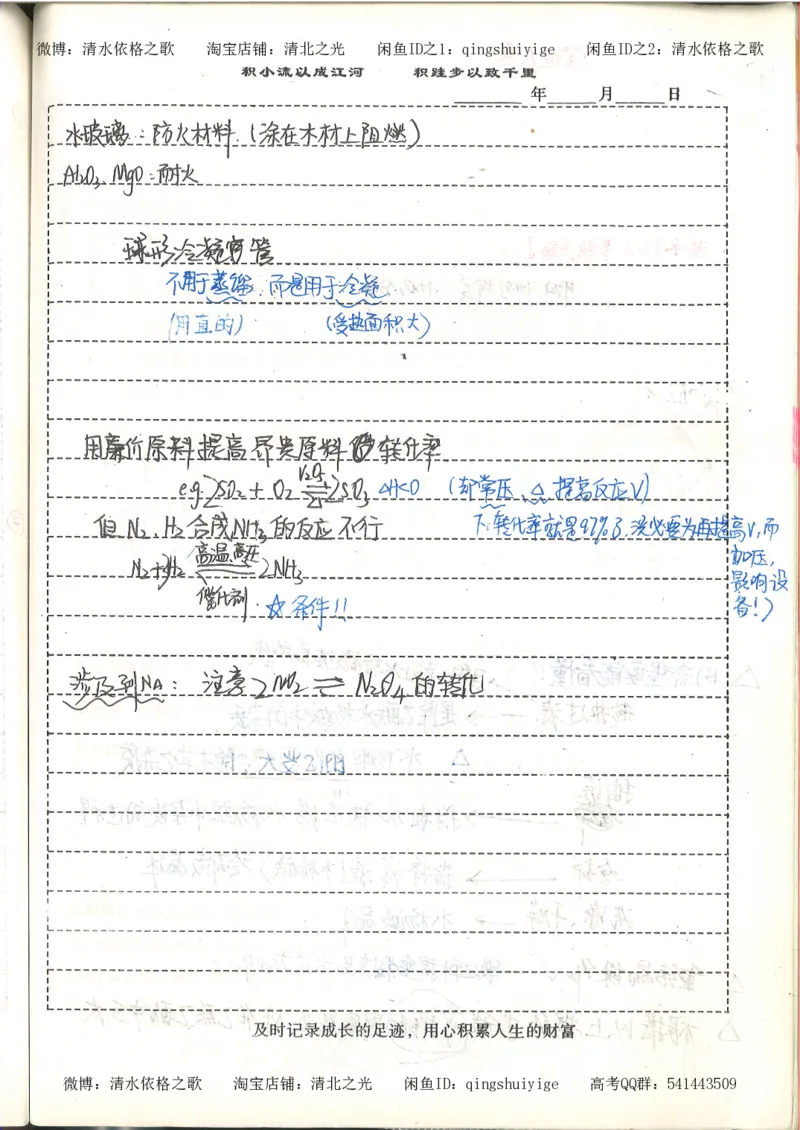 微博：清水依格之歌 淘宝店铺：清北之光 闲鱼ID之1：qingshuiyige 闲鱼ID之2：清水依格之歌
积小流以成江河 积跬步以致千里
年 月 日
水玻璃：防火材料（涂在木材上阻燃）
Al2O3、MgO：耐火
球形冷凝管
不用于蒸馏，而是用于冷凝
（用直的） （受热面积大）
用廉价原料提高昂贵原料的转化率
eg 2SO2 + O2 ⇌ 2SO3 ΔH<0 （却常压、△提高反应V）
V2O5
△
但N2、H2合成NH3的反应不行
下：转化率就是97%了，没必要为再提高V，而
加压，
影响设
备！）
N2+3H2 ⇌ 2NH3
高温、高压
催化剂
☆条件！！
涉及到NA：注意2NO2 ⇌ N2O4的转化
及时记录成长的足迹，用心积累人生的财富
微博：清水依格之歌 淘宝店铺：清北之光 闲鱼ID：qingshuiyige 高考QQ群：541443509